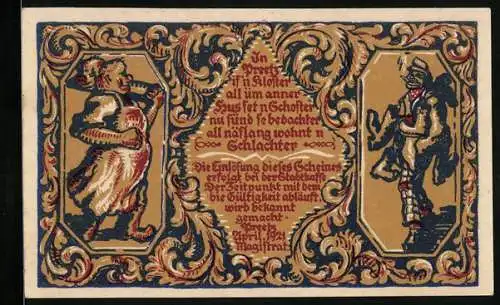 In
Preetz
is n Kloster
all üm anner
Hus set n Schoster
nu sünd se bedachter
all näslang wohnt n
Schlachter
Die Einlösung dieses Scheines
erfolgt bei der Stadtkasse
Der Zeitpunkt mit dem
die Gültigkeit abläuft,
wird bekannt
gemacht.
Preetz
April 1921
Magistrat